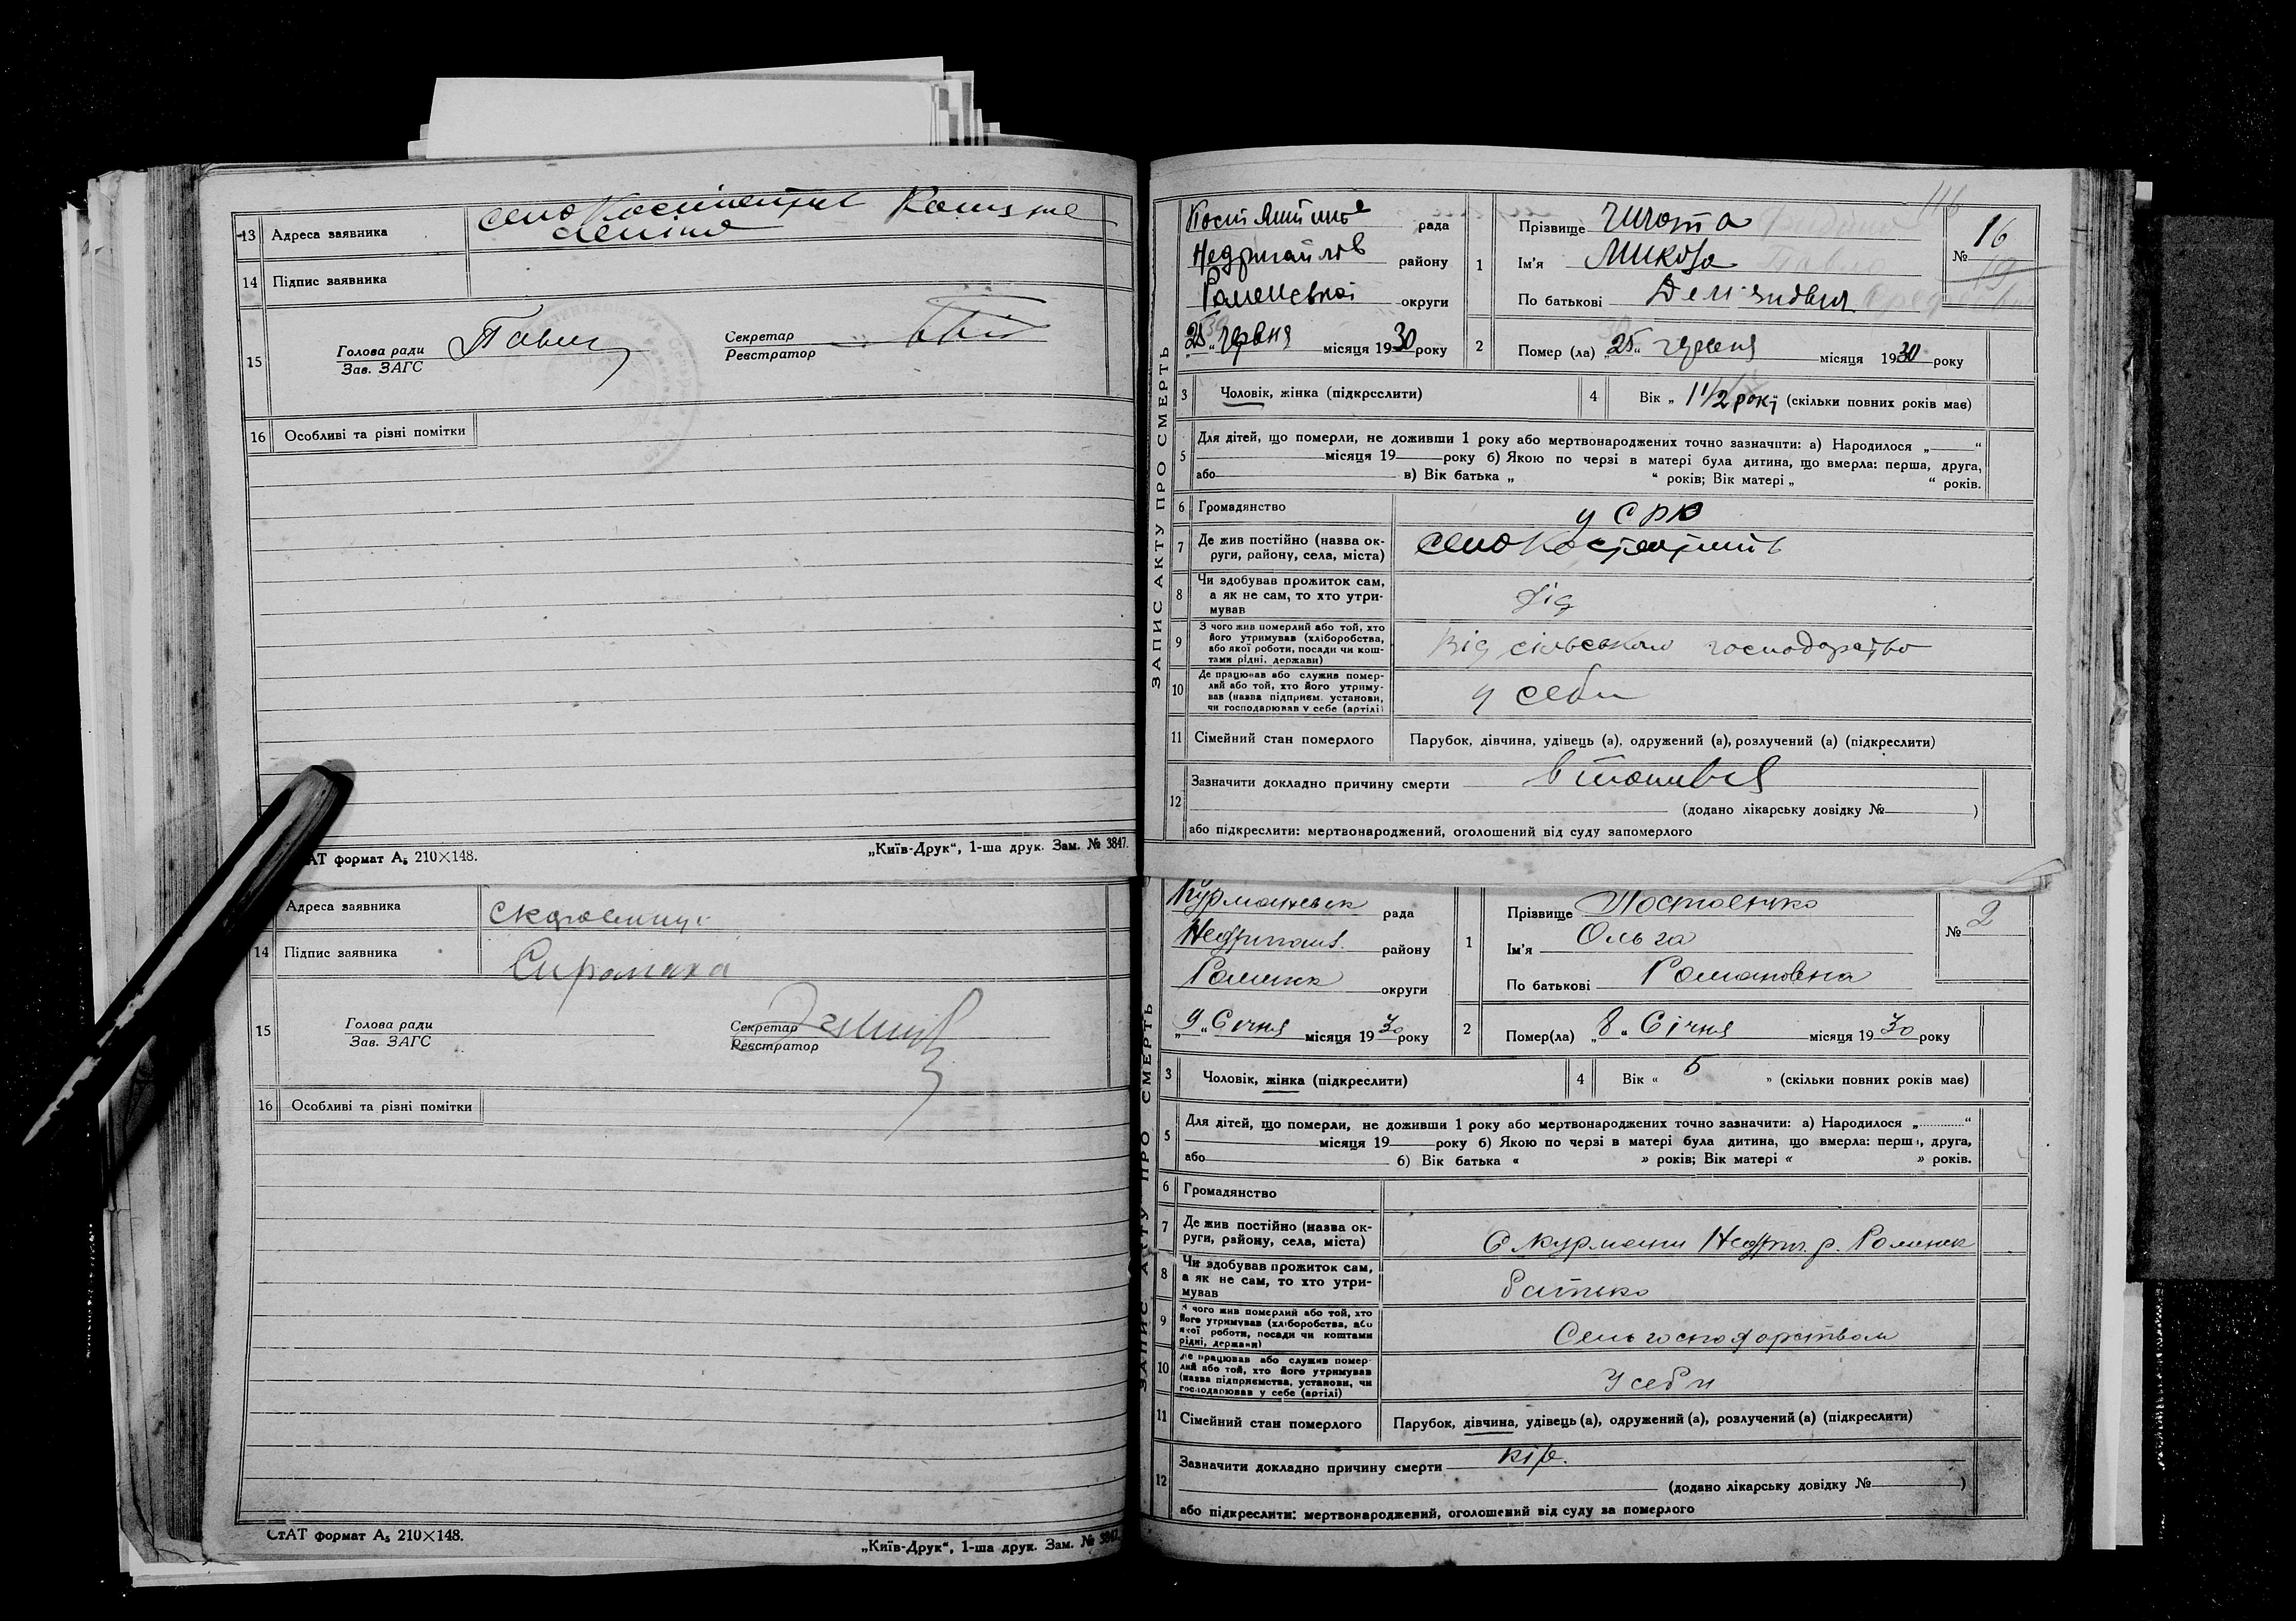 13 Адреса заявника село Костянтинів
14 Підпис заявника
15 Голова ради Секретар
Зав. ЗАГС Реєстратор
16 Особливі та різні помітки
АТ формат А₅ 210×148. „Київ-Друк“, 1-ша друк. Зам. № 3847.
Адреса заявника
14 Підпис заявника Сиромаха
15 Голова ради Секретар
Зав. ЗАГС Реєстратор
16 Особливі та різні помітки
СтАТ формат А₅ 210×148.
„Київ-Друк“, 1-ша друк. Зам. № 3847.
116
ЗАПИС АКТУ ПРО СМЕРТЬ
рада
Недригайлів району
Роменської округи
25 червня місяця 1930 року
1 Прізвище
Ім'я Микола
По батькові
№ 16
19
2 Помер (ла) „25“ червня місяця 1930 року
3 Чоловік, жінка (підкреслити)
4 Вік „ 1 1/2 рокі (скільки повних років має)
5 Для дітей, що померли, не доживши 1 року або мертвонароджених точно зазначити: а) Народилося „ “
місяця 19 року б) Якою по черзі в матері була дитина, що вмерла: перша, друга,
або в) Вік батька „ “ років; Вік матері „ “ років.
6 Громадянство УСРР
7 Де жив постійно (назва ок-
руги, району, села, міста) село
8 Чи здобував прожиток сам,
а як не сам, то хто утри-
мував дід
9 З чого жив померлий або той, хто
його утримував (хліборобства,
або якої роботи, посади чи кош-
тами рідні, держави) від сільського господарство
10 Де працював або служив помер-
лий або той, хто його утриму-
вав (назва підприєм. установи,
чи господарював у себе (артілі) у себи
11 Сімейний стан померлого Парубок, дівчина, удівець (а), одружений (а), розлучений (а) (підкреслити)
12 Зазначити докладно причину смерти втопився
(додано лікарську довідку № )
або підкреслити: мертвонароджений, оголошений від суду запомерлого
ЗАПИС АКТУ ПРО СМЕРТЬ
Курманівськ рада
Недригайл. району
Роменск округи
„9“ Січня місяця 1930 року
1 Прізвище
Ім'я Ольга
По батькові Романовна
№ 2
2 Помер(ла) „8“ Січня місяця 1930 року
3 Чоловік, жінка (підкреслити)
4 Вік « 5 » (скільки повних років має)
5 Для дітей, що померли, не доживши 1 року або мертвонароджених точно зазначити: а) Народилося „ “
місяця 19 року б) Якою по черзі в матері була дитина, що вмерла: перш , друга,
або б) Вік батька « » років; Вік матері « » років.
6 Громадянство
7 Де жив постійно (назва ок-
руги, району, села, міста) с Курмани Недриг. р. Роменск
8 Чи здобував прожиток сам,
а як не сам, то хто утри-
мував батько
9 З чого жив померлий або той, хто
його утримував (хліборобства, або
якої роботи, посади чи коштами
рідні, держави) Сельгосподарством
10 Де працював або служив помер-
лий або той, хто його утримував
(назва підприємства, установи, чи
господарював у себе (артілі) У себи
11 Сімейний стан померлого Парубок, дівчина, удівець (а), одружений (а), розлучений (а) (підкреслити)
12 Зазначити докладно причину смерти кір.
(додано лікарську довідку № )
або підкреслити: мертвонароджений, оголошений від суду за померлого